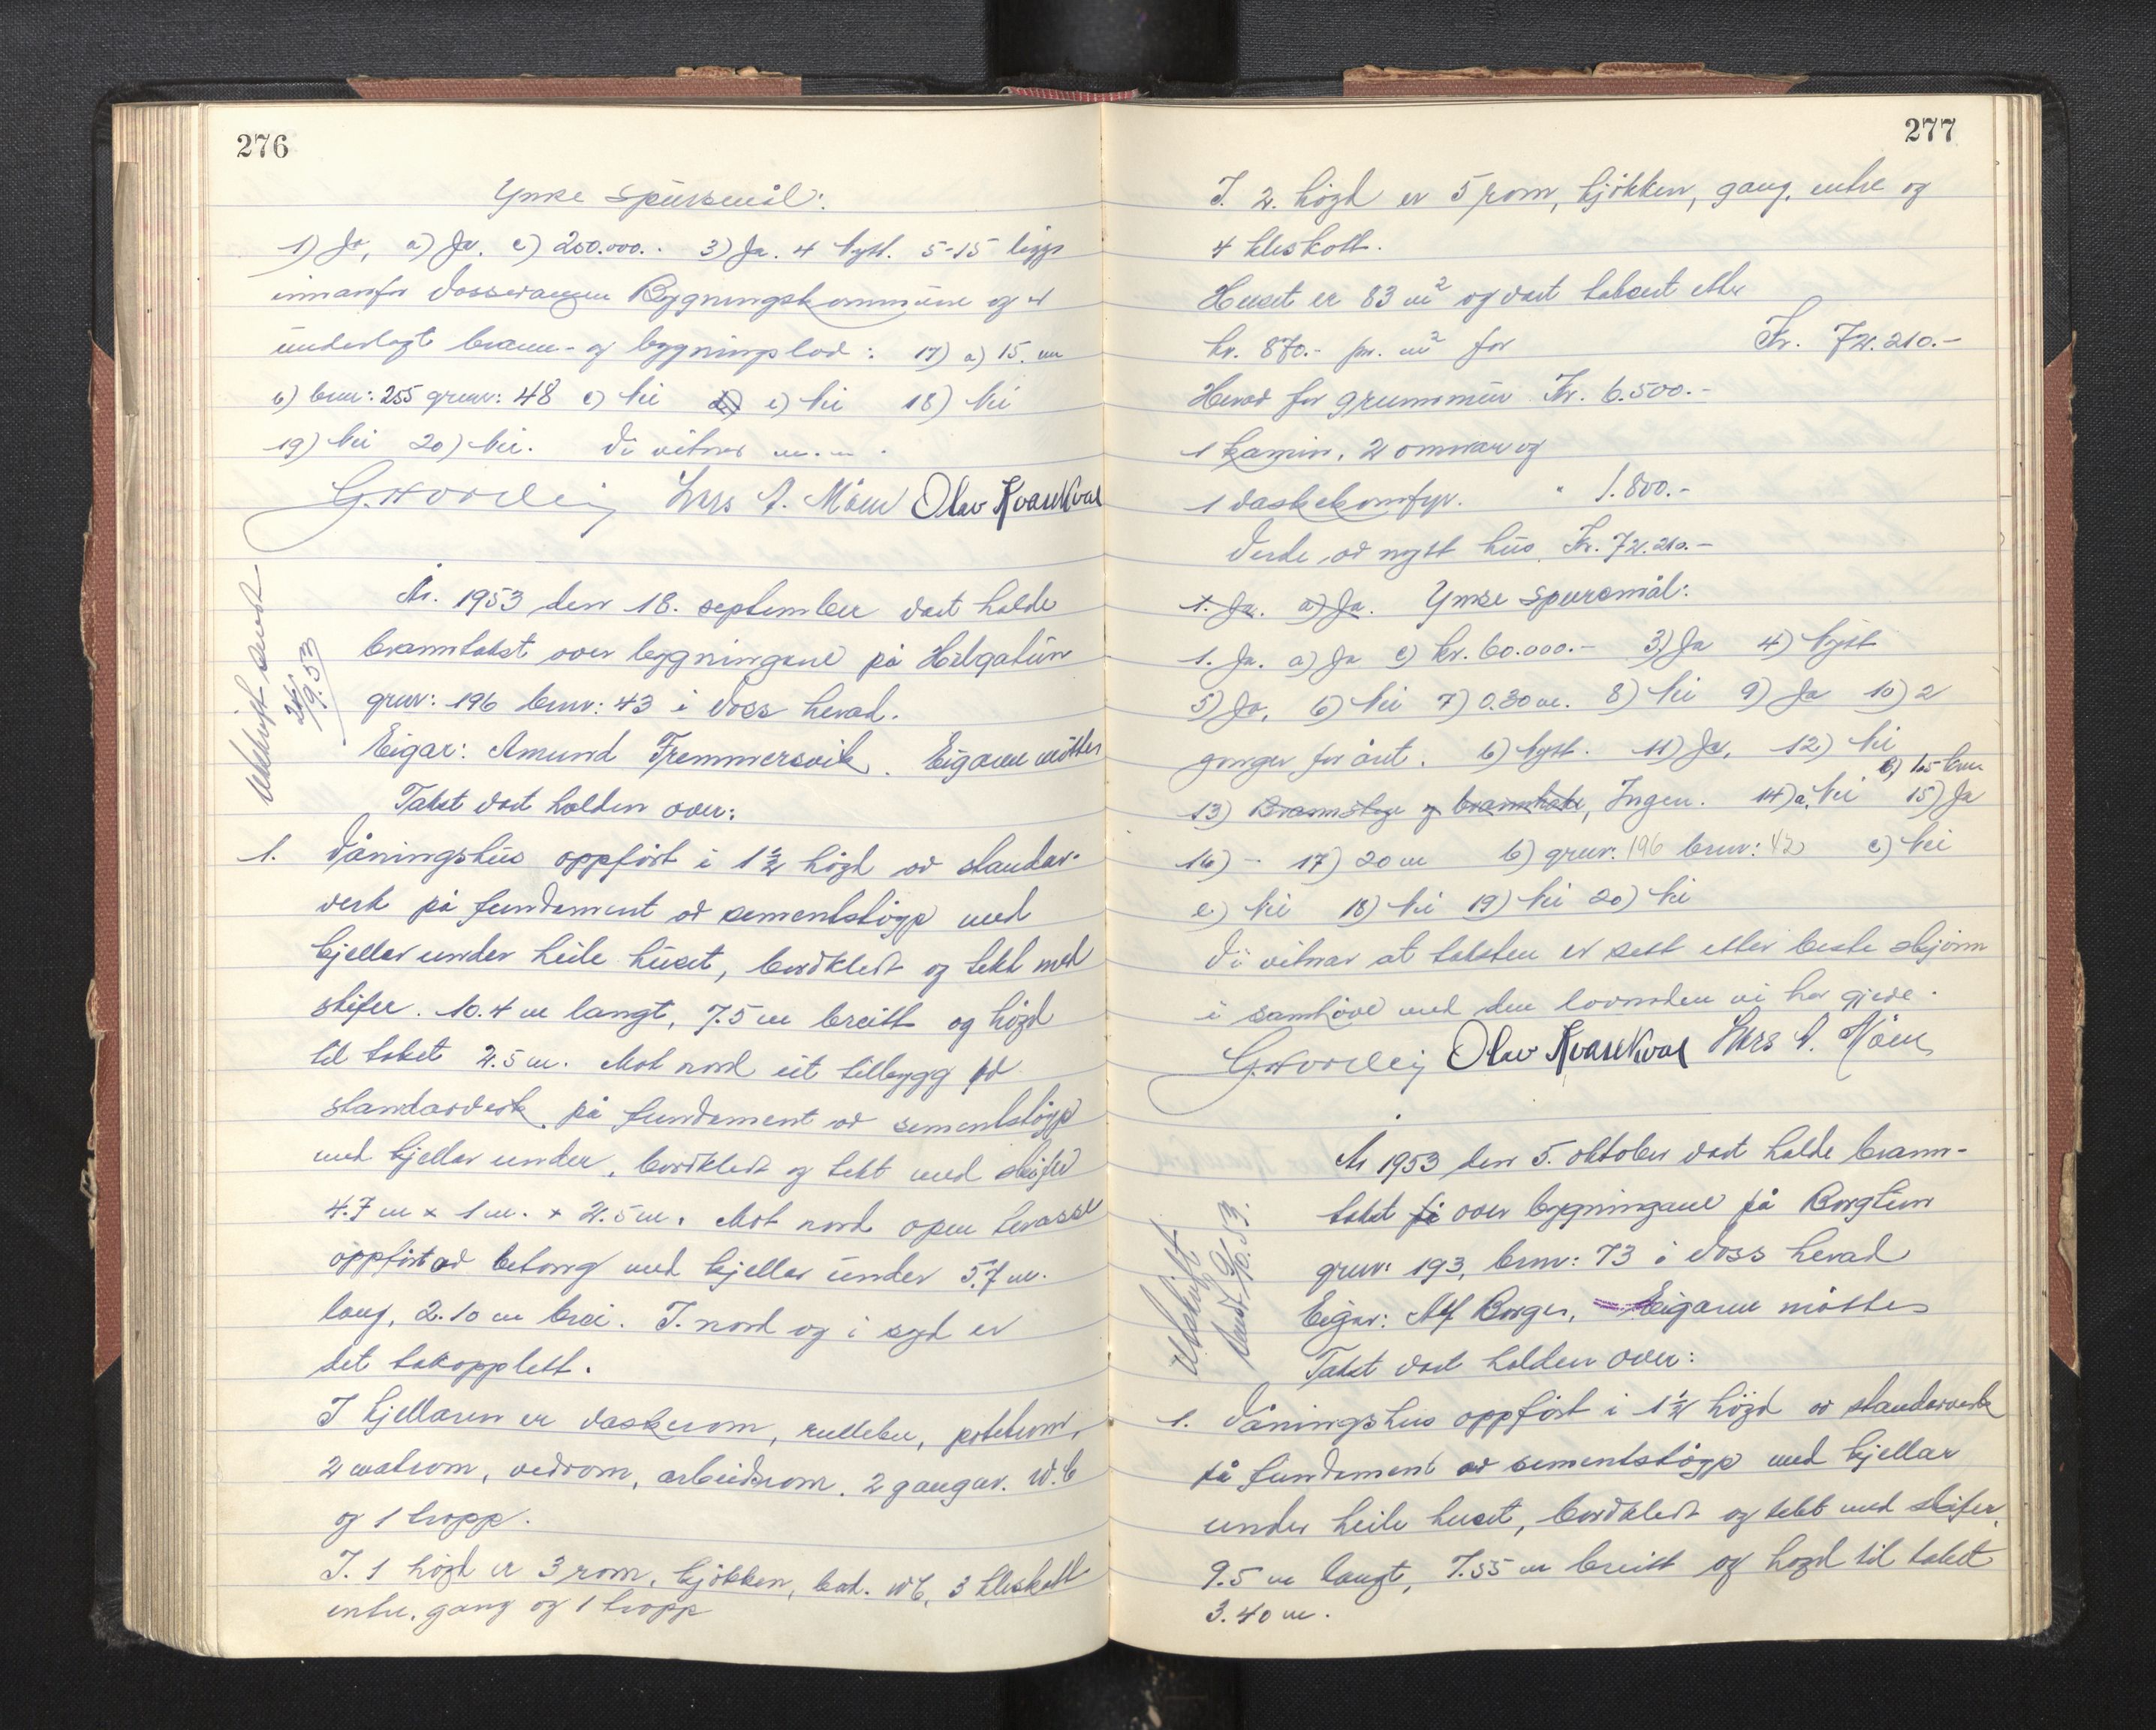 276
Ymse Spursmål:
1) Ja, a) Ja. c) 200.000.- 3) Ja. 4 Nytt. 5-15 ligg
innanfor Vossevangen Bygningskommune og er
underlagt brann- og bygningslov: 17) a) 15. m
b) bnr: 255 grnr: 48 c) Nei e) Nei 18) Nei
19) Nei 20) Nei. Vi vitnar m.m.
Lars A. Møen Olav Kvarekval
Utskrift sendt
24/9.53
År. 1953 den 18. september vart halde
branntakst over bygningane på Helgatun
grnr: 196 bnr: 43 i Voss herad.
Eigar: Amund Fremmersvik. Eigaren møtte
Takst vart halden over:
1. Våningshus oppført i 1½ høgd av standar-
verk på fundament av sementstøyp med
kjellar under heile huset, bordkledt og tekt med
skifer. 10.4 m langt, 7.5 m breitt og høgd
til taket 4.5 m. Mot nord eit tilbygg av
standarverk på fundament av sementstøyp
med kjellar under, bordkledt og tekt med skifer
4.7 m x 1 m. x 4.5 m. Mot nord open terasse
oppført av betong med kjellar under 5.7 m.
lang, 2.10 m brei. I nord og i syd er
det takopplett.
I kjellaren er vaskerom, rullebu, potetrom,
2 matrom, vedrom, arbeidsrom, 2 gangar. W.C
og 1 tropp.
I. 1 høgd er 3 rom, kjøkken, bad. WC, 3 kleskott
entre, gang og 1 tropp
277
I. 2. høgd er 5 rom, kjøkken, gang, entre og
4 kleskott.
Huset er 83 m² og vart taksert etter
kr. 870.- pr. m² for Kr. 72.210.-
Herav for grunnmur Kr. 6.500.-
1 kamin, 2 omnar og
1 vaskekomfyr. " 1.800.-
Verde av nytt hus Kr. 72.210.-
1. Ja. a) Ja. Ymse Spursmål:
1. Ja. a) Ja c) kr. 60.000.- 3) Ja 4) Nytt
5) Ja, 6) Nei 7) 0.30 m. 8) Nei 9) Ja 10) 2
gonger for året. b) Nytt. 11) Ja, 12) Nei
13) Brannstige og brannhake, Ingen. 14) a. Nei 15) Ja
16) - 17) 20 m b) grnr. 196 bnr: 42 c) Nei
e) Nei 18) Nei 19) Nei 20) Nei
Vi vitnar at taksten er sett etter beste skjønn
i samhøve med den lovnaden vi har gjeve.
Olav Kvarekval Lars A. Møen
Utskrift
sendt
År 1953 den 5. oktober vart halde brann-
takst på over bygningane på Borgtun
grnr: 193, bnr: 73 i Voss herad
Eigar: Alf Borge, Eigaren møtte
Takst vart halden over:
1. Våningshus oppført i 1½ høgd av standarverk
på fundament av sementstøyp med kjellar
under heile huset, bordkledt og tekt med skifer.
9.5 m langt, 7.55 m breitt og høgd til taket
3.40 m.